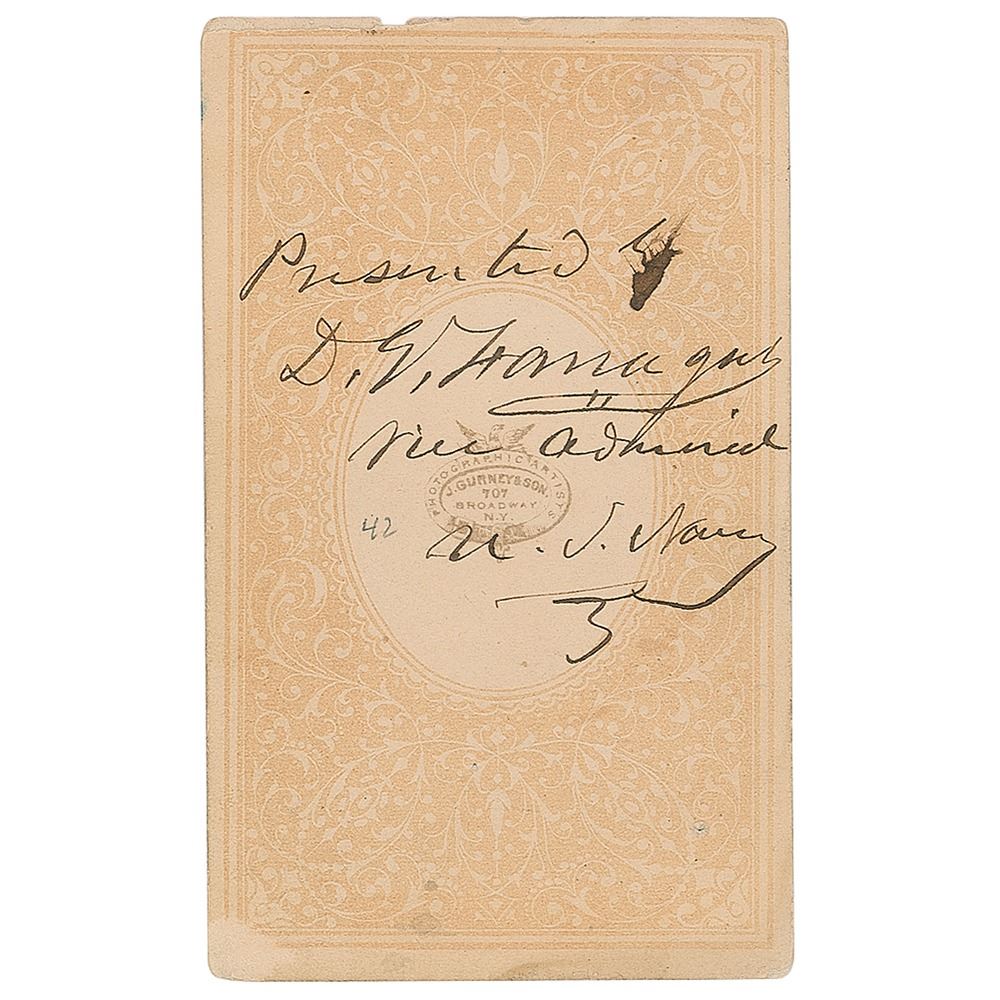 Presented by
D. G. Farragut
Vice Admiral
U. S. Navy
PHOTOGRAPHIC ARTISTS
J. GURNEY & SON.
707
BROADWAY
N.Y.
42